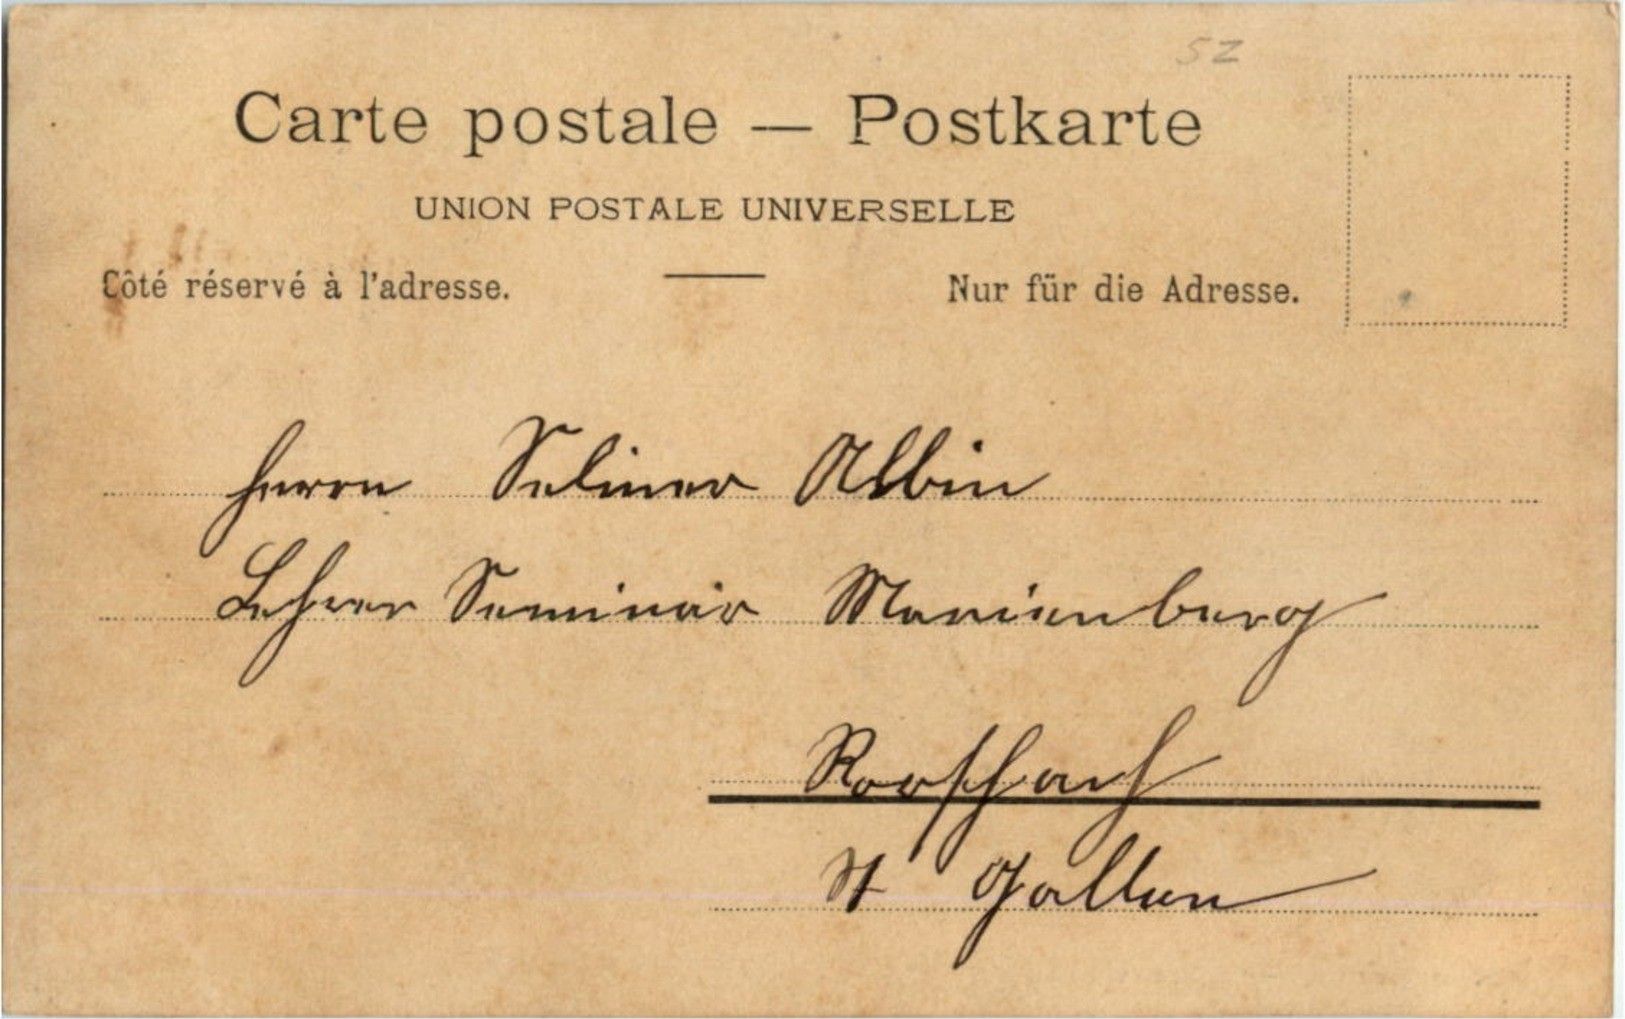 SZ
Carte postale — Postkarte
UNION POSTALE UNIVERSELLE
Côté réservé à l'adresse.
Nur für die Adresse.
Herrn Seliner Albin
Lehrer Seminar Marienberg
Rorschach
St Gallen